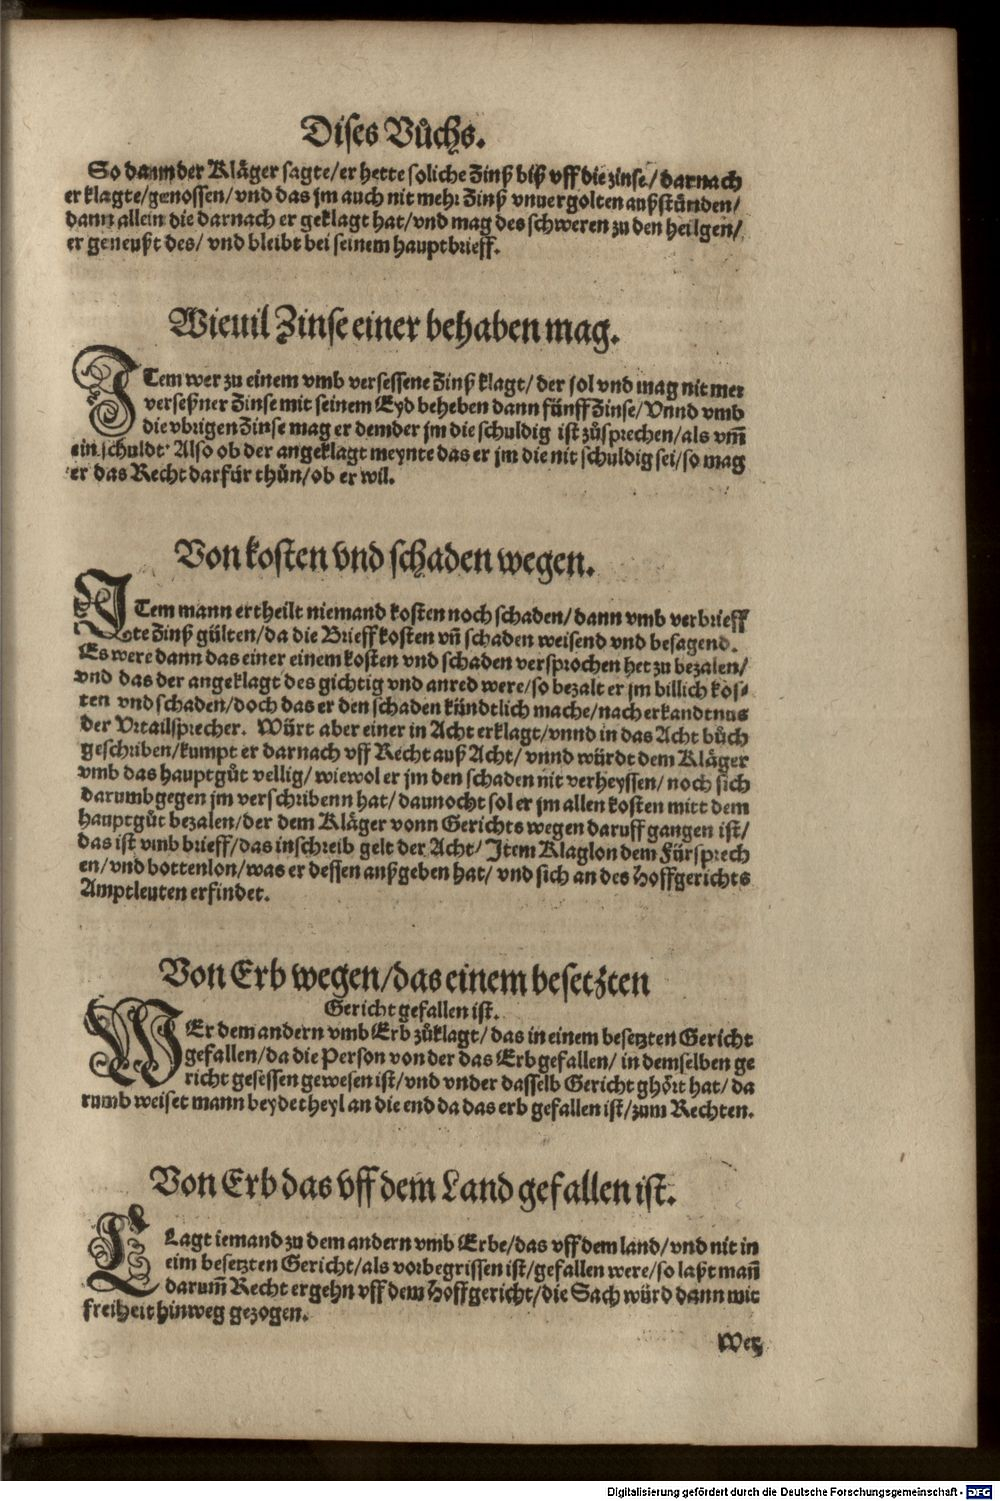 Dises Bůchs.
So dann der Kläger sagte/er hette soliche Zinß biß vff die zinse/darnach
er klagte/genossen/vnd das jm auch nit mehr Zinß vnuergolten außstünden/
dann allein die darnach er geklagt hat/vnd mag des schweren zu den heilgen/
er geneußt des/ vnd bleibt bei seinem hauptbrieff.
Wieuil Zinse einer behaben mag.
ITem wer zu einem vmb versessene Zinß klagt/ der sol vnd mag nit mer
verseßner Zinse mit seinem Eyd beheben dann fünff Zinse/Vnnd vmb
die vbrigen Zinse mag er dem der jm die schuldig ist zůsprechen/als vm̃
ein schuldt Also ob der angeklagt meynte das er jm die nit schuldig sei/so mag
er das Recht darfür thůn/ob er wil.
Von kosten vnd schaden wegen.
ITem mann ertheilt niemand kosten noch schaden/dann vmb verbrieff
te Zinß gülten/da die Brieff kosten vñ schaden weisend vnd besagend.
Es were dann das einer einem kosten vnd schaden versprochen het zu bezalen/
vnd das der angeklagt des gichtig vnd anred were/so bezalt er jm billich kos⸗
ten vnd schaden/doch das er den schaden kündtlich mache/nach erkandtnus
der Vrtailsprecher. Würt aber einer in Acht erklagt/vnnd in das Acht bůch
geschriben/kumpt er darnach vff Recht auß Acht/ vnnd würdt dem Kläger
vmb das hauptgůt vellig/ wiewol er jm den schaden nit verheyssen/noch sich
darumb gegen jm verschribenn hat/dannocht sol er jm allen kosten mitt dem
hauptgůt bezalen/der dem Kläger vonn Gerichts wegen daruff gangen ist/
das ist vmb brieff/das inschreib gelt der Acht/ Item Klaglon dem Fürsprech
en/vnd bottenlon/was er dessen außgeben hat/ vnd sich an des Hoffgerichts
Amptleuten erfindet.
Von Erb wegen/das einem besetzten
Gericht gefallen ist.
WEr dem andern vmb Erb zůklagt/das in einem besetzten Gericht
gefallen/da die Person von der das Erb gefallen/ in demselben ge
richt gesessen gewesen ist/vnd vnder dasselb Gericht ghört hat/da
rumb weiset mann beyde theyl an die end da das erb gefallen ist/zum Rechten.
Von Erb das vff dem Land gefallen ist.
KLagt iemand zu dem andern vmb Erbe/das vff dem land/vnd nit in
eim besetzten Gericht/als vorbegrissen ist/gefallen were/so laßt mañ
darum̃ Recht ergehn vff dem Hoffgericht/die Sach würd dann mit
freiheit hinweg gezogen.
Wer
Digitalisierung gefördert durch die Deutsche Forschungsgemeinschaft - DFG